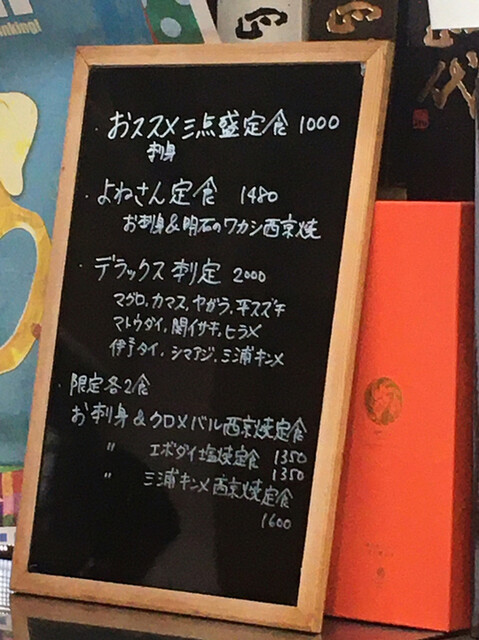 nking!
・おススメ三点盛定食 1000
刺身
・よねさん定食 1480
お刺身&明石のワカシ西京焼
・デラックス刺定 2000
マグロ,カマス,ヤガラ,平スズキ
マトウダイ,関イサキ,ヒラメ
伊予ダイ,シマアジ,三浦キンメ
・限定各2食
お刺身&クロメバル西京焼定食
〃 エボダイ塩焼定食 1350
1350
〃 三浦キンメ西京焼定食
1600